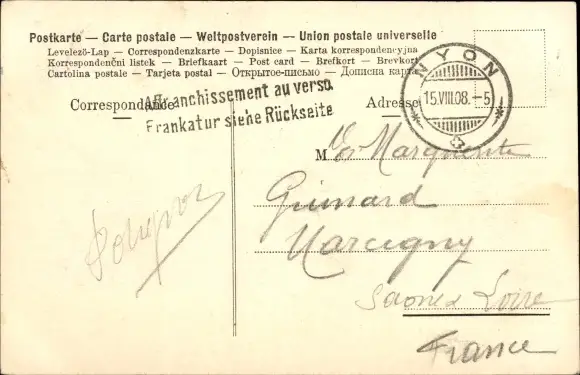 Postkarte — Carte postale — Weltpostverein — Union postale universelle
Levelező-Lap — Correspondenzkarte — Dopisnice — Karta korrespondencyjna
Korrespondenční listek — Briefkaart — Post card — Brefkort — Brevkort
Cartolina postale — Tarjeta postal — Открытое-письмо — Дописна карта
NYON
15.VIII.08.-5
Correspondance
Affranchissement au verso
Frankatur siehe Rückseite
Adresse
M Marguerite
Guinard
Marcigny
Saone & Loire
France